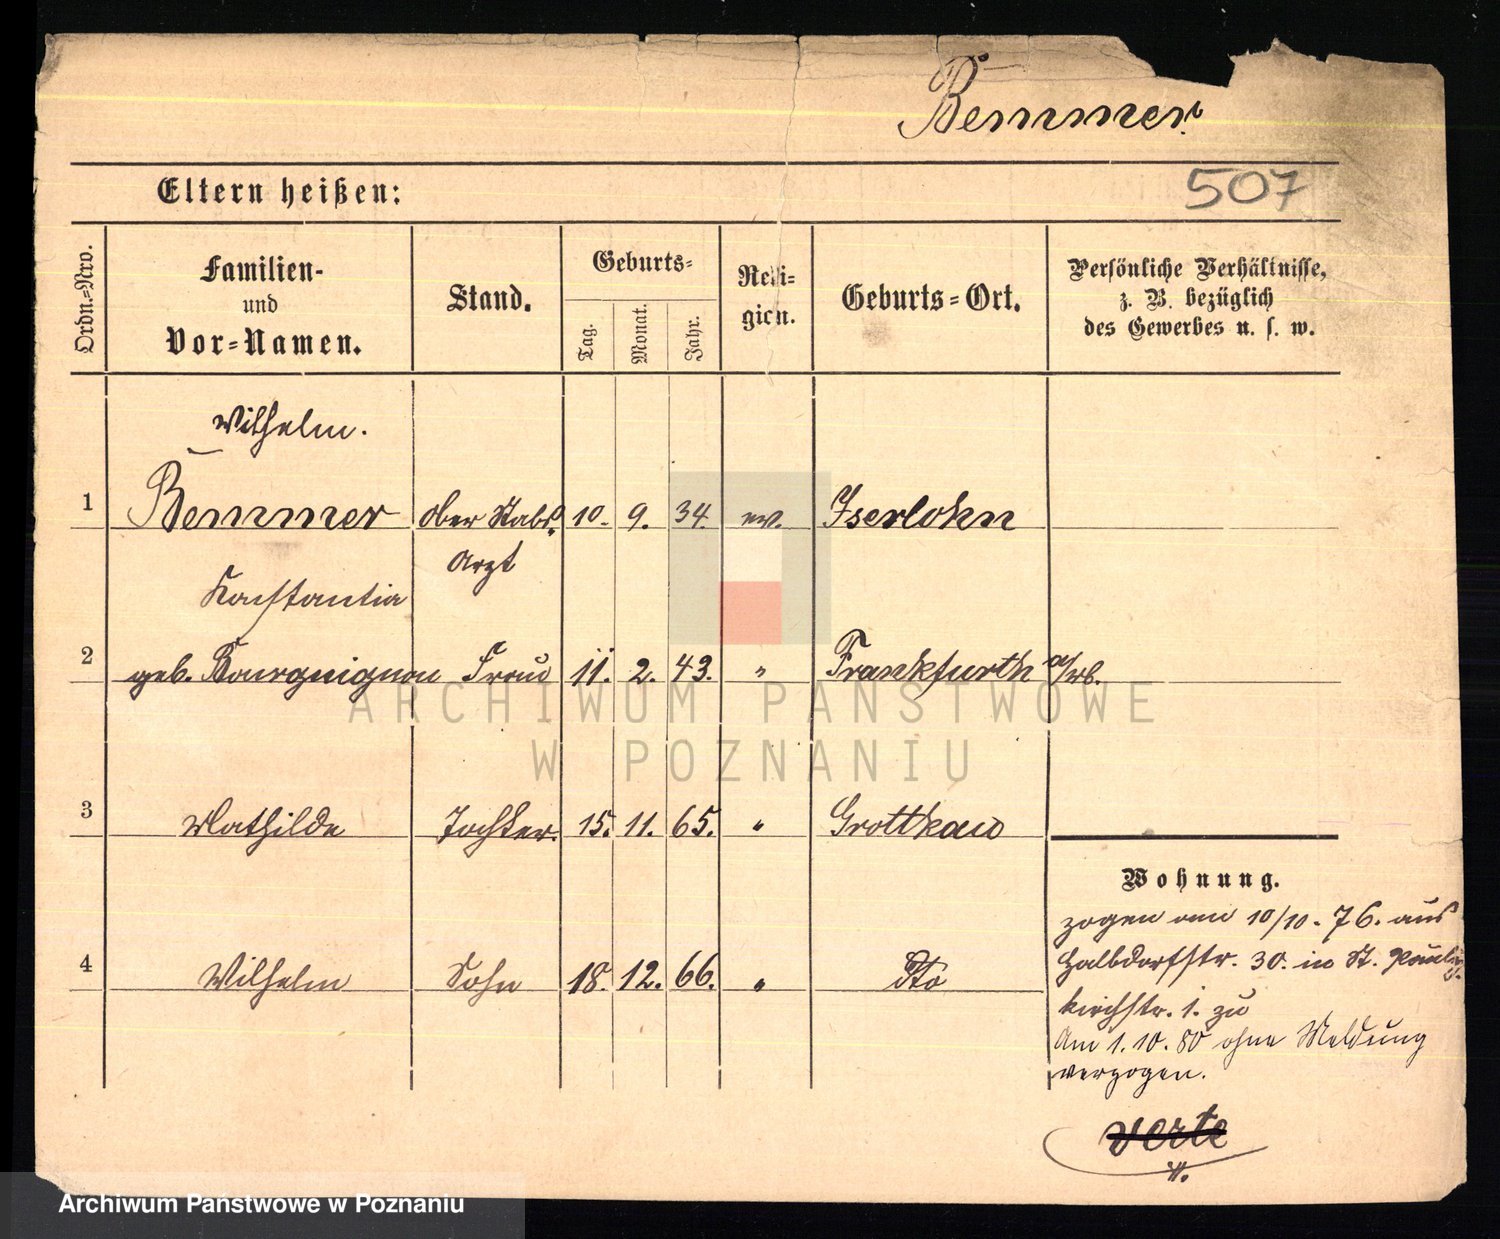 Bemmer.
Eltern heißen:
507
Ordn.=Nro.
Familien-
und
Vor=Namen.
Stand.
Geburts=
Tag.
Monat.
Jahr.
Reli-
gion.
Geburts=Ort.
Persönliche Verhältnisse,
z. B. bezüglich
des Gewerbes u. s. w.
Wilhelm.
1 Bemmer Ober Stabs 10. 9. 34. ev. Iserlohn
Arzt
Konstantia
2 geb. Bourguignon Frau 11. 2. 43. " Frankfurth a/
3 Mathilde Tochter. 15. 11. 65. " Grottkau
Wohnung.
zogen am 10/10. 76. aus
Halbdorfstr. 30. in St. Pauli
4 Wilhelm Sohn 18. 12. 66. " dto
kirchstr. 1. zu
Am 1. 10. 80 ohne Meldung
verzogen.
verte
ARCHIWUM PAŃSTWOWE
W POZNANIU
Archiwum Państwowe w Poznaniu